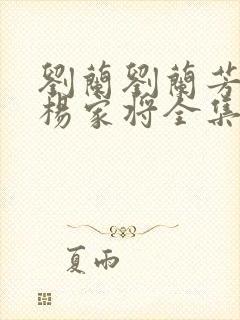 劉蘭劉蘭芳
楊家將全集
夏雨